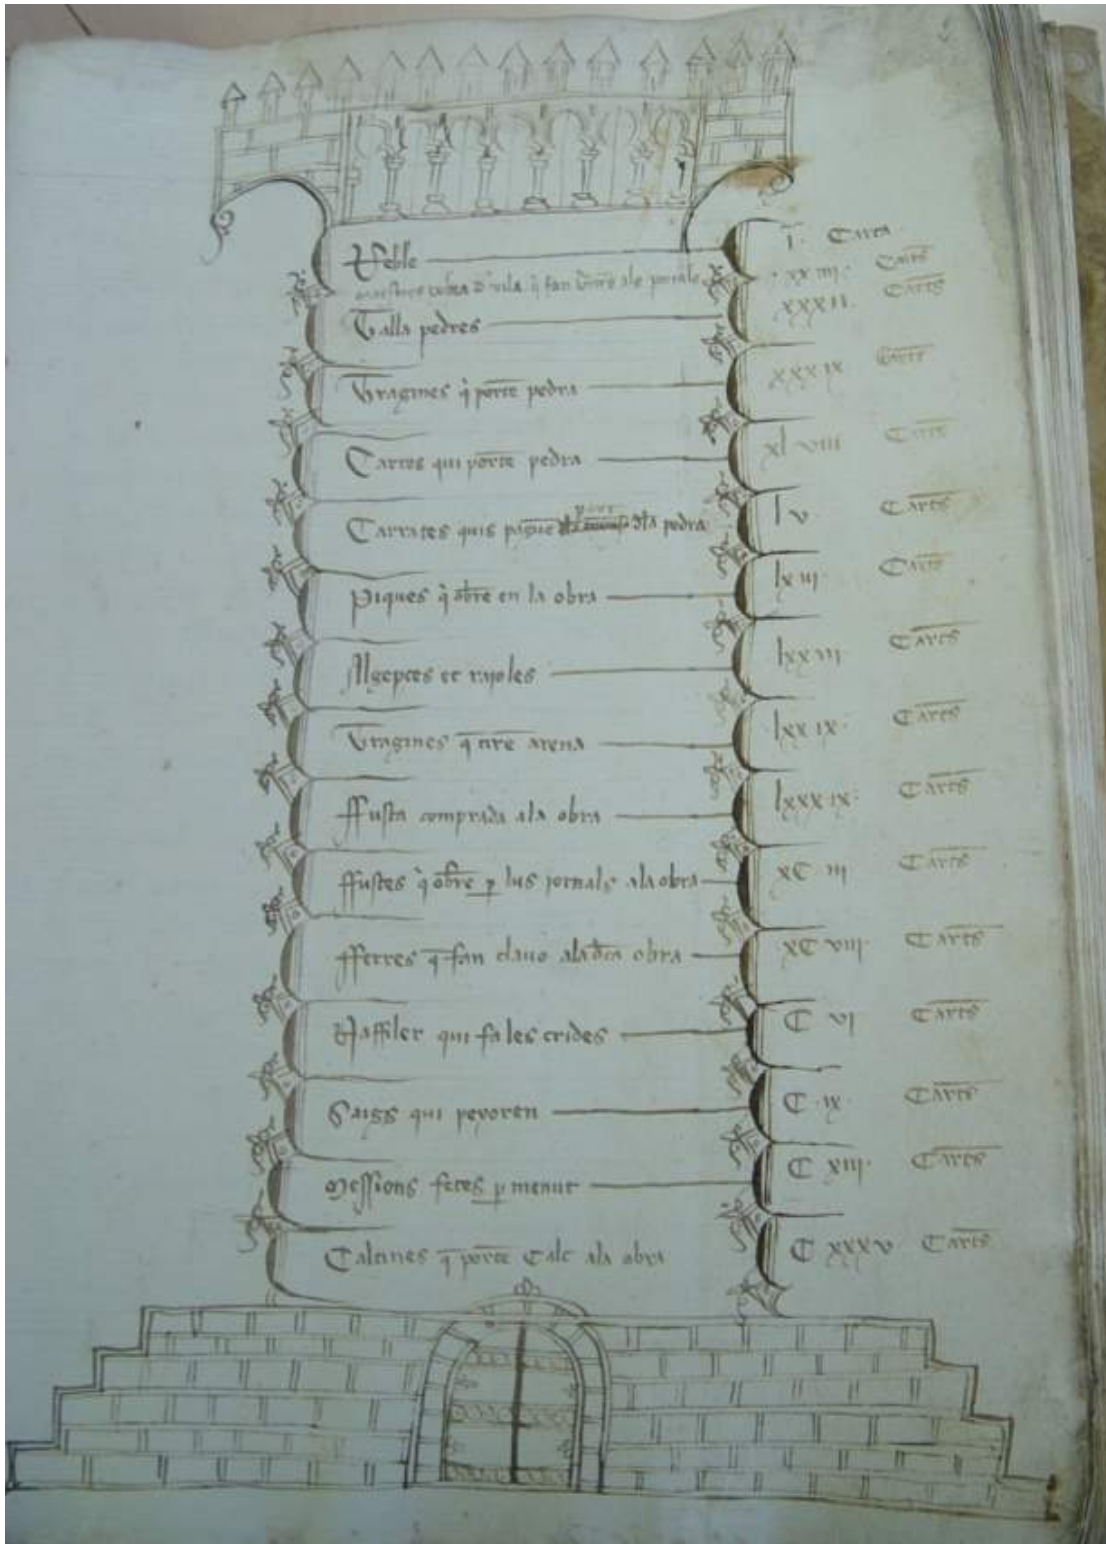 Reble I. Carta
maestres obra d vila q fan al portal .xx iiii. Carts
Talla pedres xxxii. Carts
Tragines q porte pedra xxx ix Carts
Carros qui porte pedra xl viii Carts
Carrates quis pague dla pedra l v Carts
Piques q obre en la obra lx iii Carts
Algepces et rajoles lxx vii Carts
Tragines q tire arena lxx ix. Carts
ffusta comprada ala obra lxxx ix. Carts
ffustes q obre p lus jornals ala obra xC iii Carts
fferres q fan clauo ala dta obra xC viii. Carts
Naffiler qui fa les crides C vi Carts
Saigs qui peyoren C .ix. Carts
Messions fetes p menut C xiii. Carts
Calcines q porte Calc ala obra C xxxv Carts